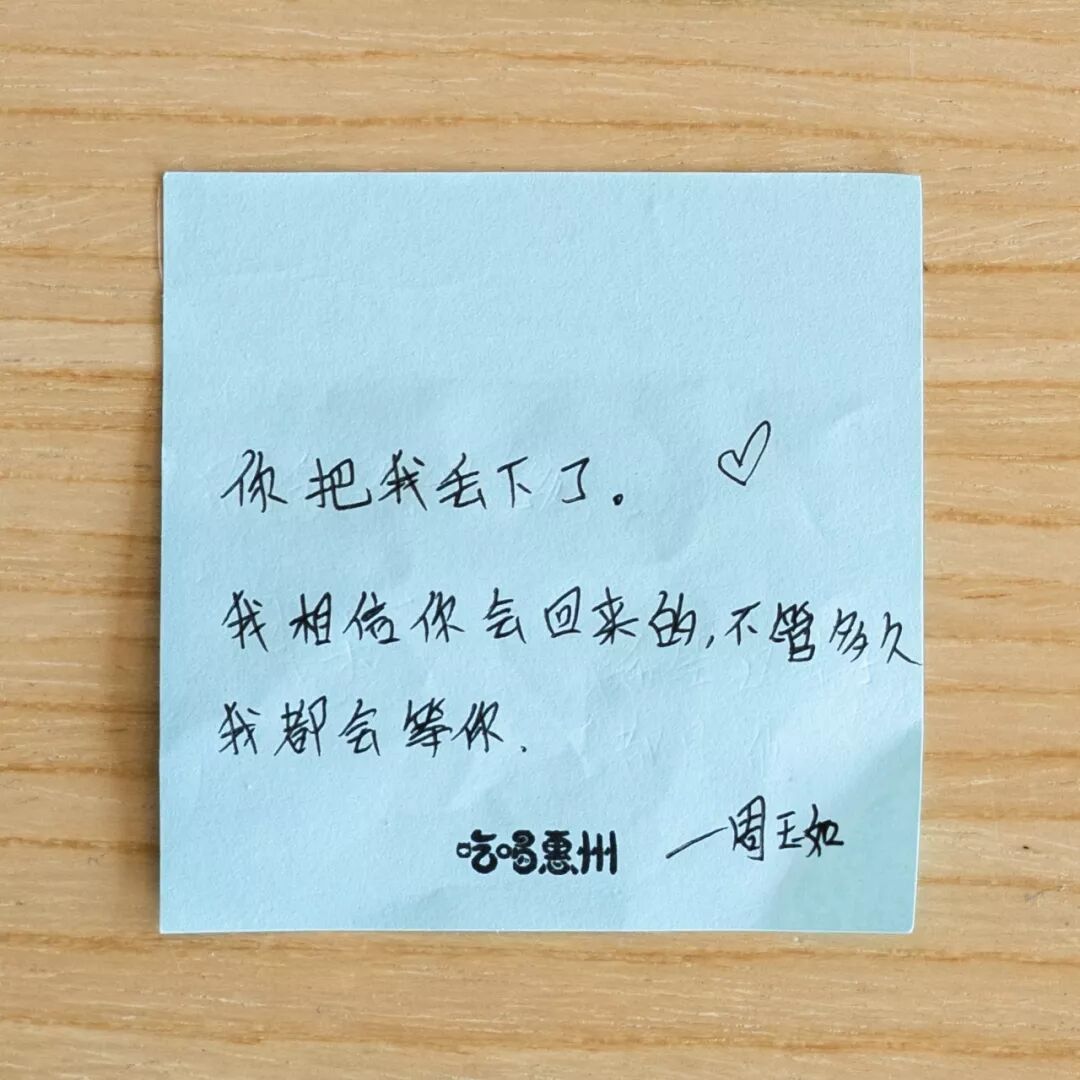 你把我丢下了。
我相信你会回来的,不管多久
我都会等你.
吃喝惠州
—周玉如